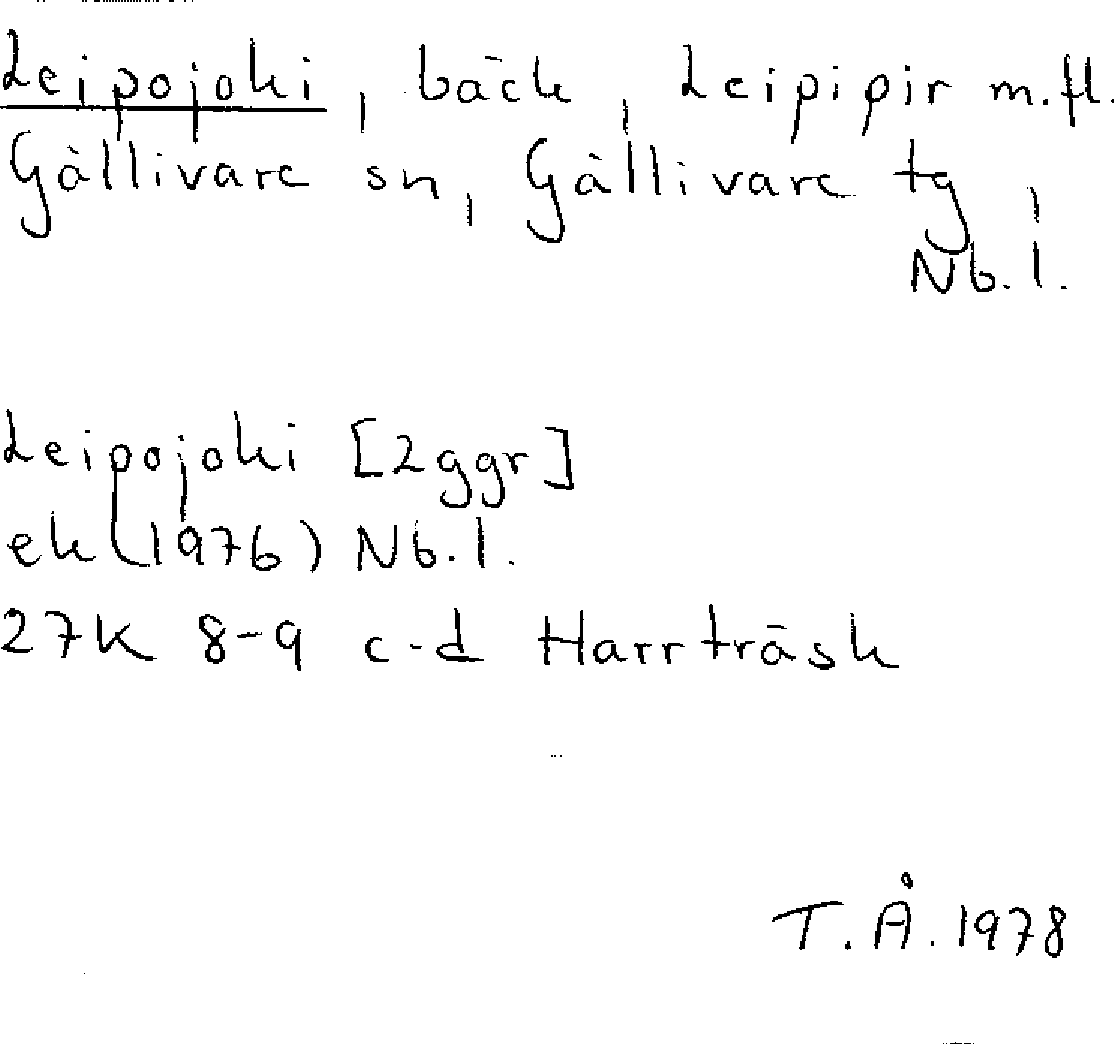 Leipojoki, bäck, Leipipir m.fl.
Gällivare sn, Gällivare tg,
Nb.l.
Leipojoki [2ggr]
ek (1976) Nb.l.
27K 8-9 c-d Harrträsk
T.Å. 1978